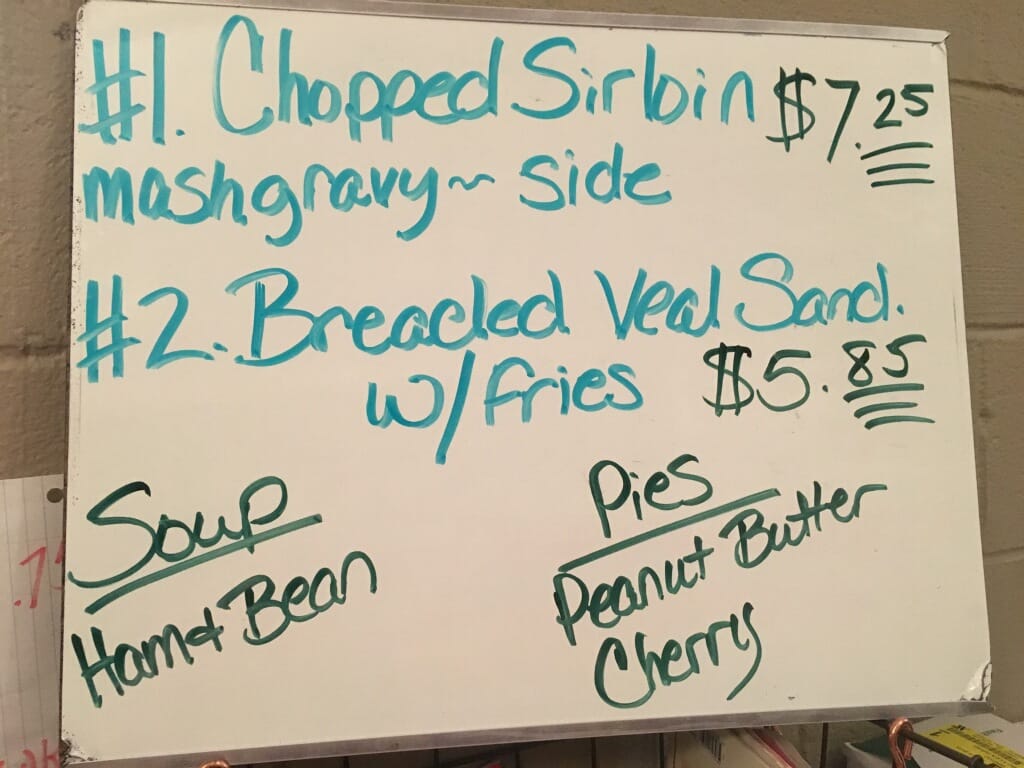 #1. Chopped Sirloin $7.25
mashgravy~ side
#2. Breaded Veal Sand.
w/fries $5.85
Soup
Ham & Bean
Pies
Peanut Butter
Cherry